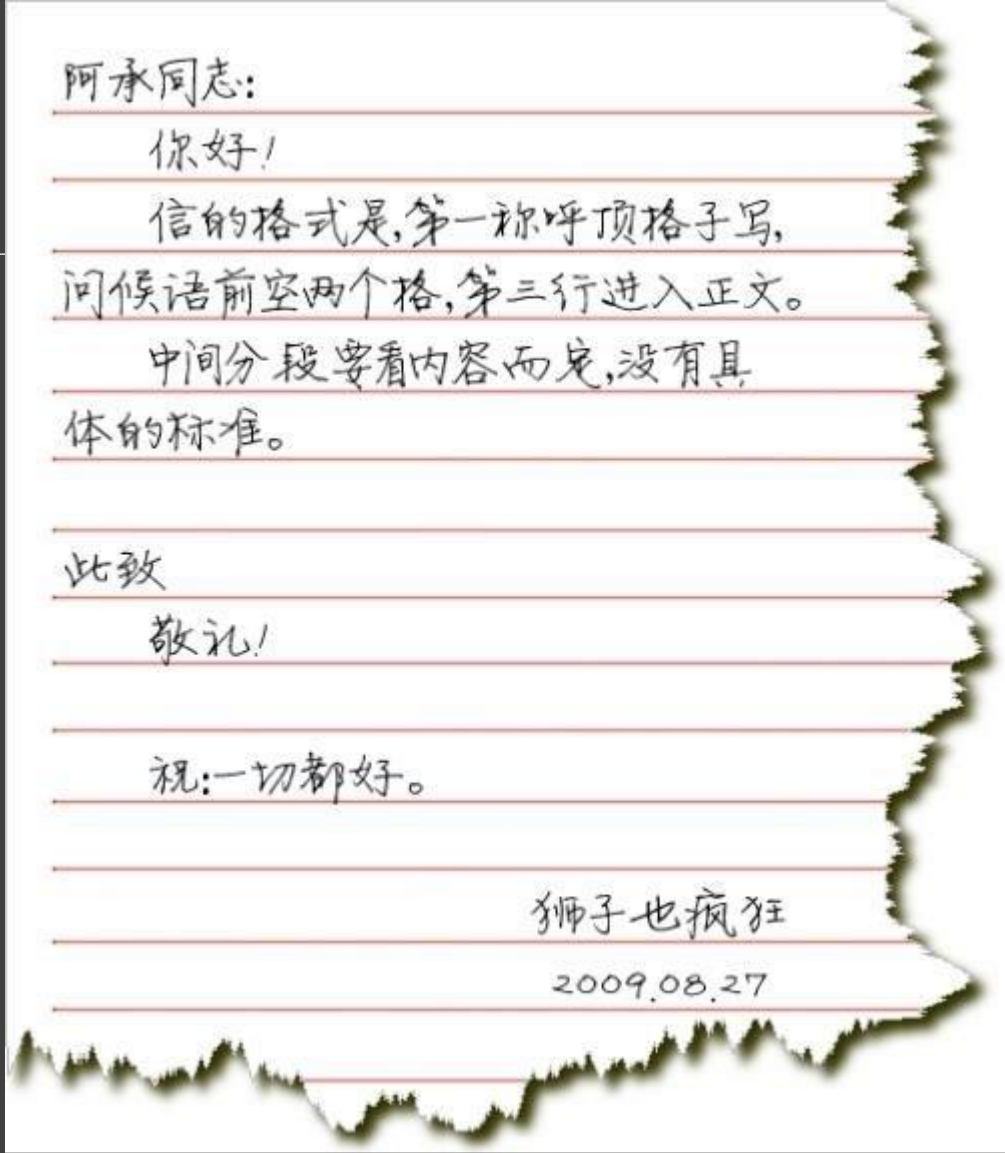 阿承同志:
你好!
信的格式是,第一称呼顶格子写,
问候语前空两个格,第三行进入正文。
中间分段要看内容而定,没有具
体的标准。
此致
敬礼!
祝:一切都好。
狮子也疯狂
2009.08.27